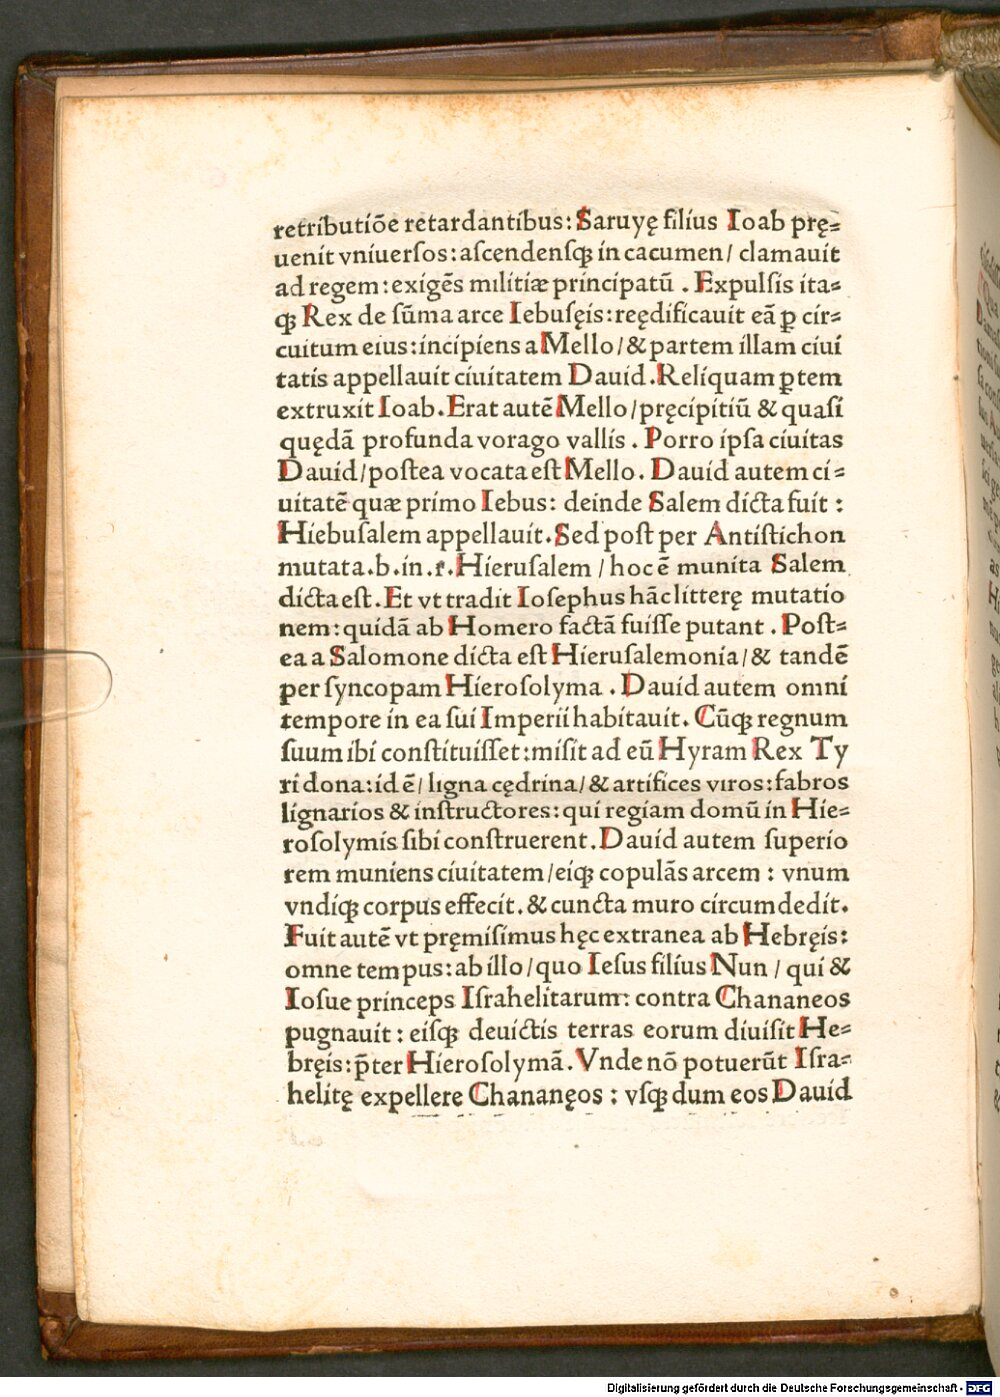 retributiōe retardantibus: Saruyę filius Ioab prę⸗
uenit vniuersos: ascendensqꝫ in cacumen/ clamauit
ad regem: exigēs militiæ principatū . Expulsis ita⸗
qꝫ Rex de sūma arce Iebusęis: reędificauit eā ꝑ cir⸗
cuitum eius: incipiens a Mello/ & partem illam ciui
tatis appellauit ciuitatem Dauid. Reliquam ꝑtem
extruxit Ioab. Erat autē Mello/ pręcipitiū & quasi
quędā profunda vorago vallis . Porro ipsa ciuitas
Dauid/ postea vocata est Mello. Dauid autem ci⸗
uitatē quæ primo Iebus: deinde Salem dicta fuit :
Hiebusalem appellauit. Sed post per Antistichon
mutata .b. in .r. Hierusalem / hoc ē munita Salem
dicta est. Et vt tradit Iosephus hāc litterę mutatio
nem: quidā ab Homero factā fuisse putant . Post⸗
ea a Salomone dicta est Hierusalemonia/ & tandē
per syncopam Hierosolyma . Dauid autem omni
tempore in ea sui Imperii habitauit. Cūqꝫ regnum
suum ibi constituisset: misit ad eū Hyram Rex Ty
ri dona: id ē/ ligna cędrina/ & artifices viros: fabros
lignarios & instructores: qui regiam domū in Hie⸗
rosolymis sibi construerent. Dauid autem superio
rem muniens ciuitatem/ eiqꝫ copulās arcem : vnum
vndiqꝫ corpus effecit. & cuncta muro circumdedit.
Fuit autē vt pręmisimus hęc extranea ab Hebręis:
omne tempus: ab illo/ quo Iesus filius Nun / qui &
Iosue princeps Israhelitarum: contra Chananeos
pugnauit : eisqꝫ deuictis terras eorum diuisit He⸗
bręis: p̄ter Hierosolymā. Vnde nō potuerūt Isra⸗
helitę expellere Chananęos : vsqꝫ dum eos Dauid
Digitalisierung gefördert durch die Deutsche Forschungsgemeinschaft - DFG